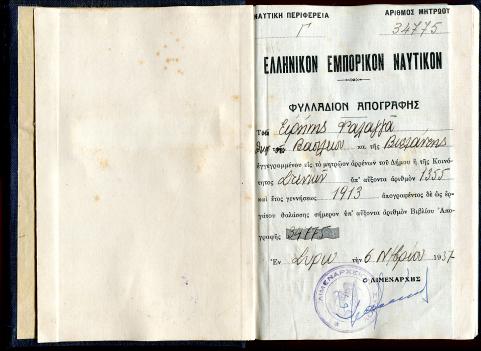 ΝΑΥΤΙΚΗ ΠΕΡΙΦΕΡΕΙΑ
Γ
ΑΡΙΘΜΟΣ ΜΗΤΡΩΟΥ
34775
ΕΛΛΗΝΙΚΟΝ ΕΜΠΟΡΙΚΟΝ ΝΑΥΤΙΚΟΝ
ΦΥΛΛΑΔΙΟΝ ΑΠΟΓΡΑΦΗΣ
Τοῦ Εἰρήνης Φαλαγγᾶ
καὶ τῆς
ἐγγεγραμμένου εἰς τὸ μητρῷον ἀρρένων τοῦ Δήμου ἢ τῆς Κοινό-
τητος ὑπ' αὔξοντα ἀριθμὸν 1355
καὶ ἔτος γεννήσεως 1913 ἀπογραφέντος δὲ ὡς ἐρ-
γάτου θαλάσσης σήμερον ὑπ' αὔξοντα ἀριθμὸν Βιβλίου Ἀπο-
γραφῆς 34775
Ἐν Σύρῳ τῇ 6 Ν/βρίου 1937
Ο ΛΙΜΕΝΑΡΧΗΣ